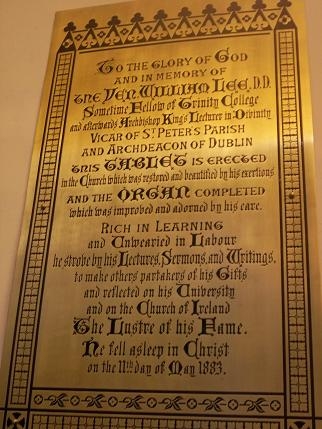 To the glory of God
and in memory of
the Ven. William Lee, D.D.
Sometime Fellow of Trinity College
and afterwards Archbishop King's Lecturer in Divinity
Vicar of St. Peter's Parish
and Archdeacon of Dublin
this TABLET is erected
in the Church which was restored and beautified by his exertions
and the ORGAN completed
which was improved and adorned by his care.
Rich in Learning
and Unwearied in Labour
he strove by his Lectures, Sermons, and Writings,
to make others partakers of his Gifts
and reflected on his University
and on the Church of Ireland
The Lustre of his Fame.
He fell asleep in Christ
on the 11th day of May 1883.